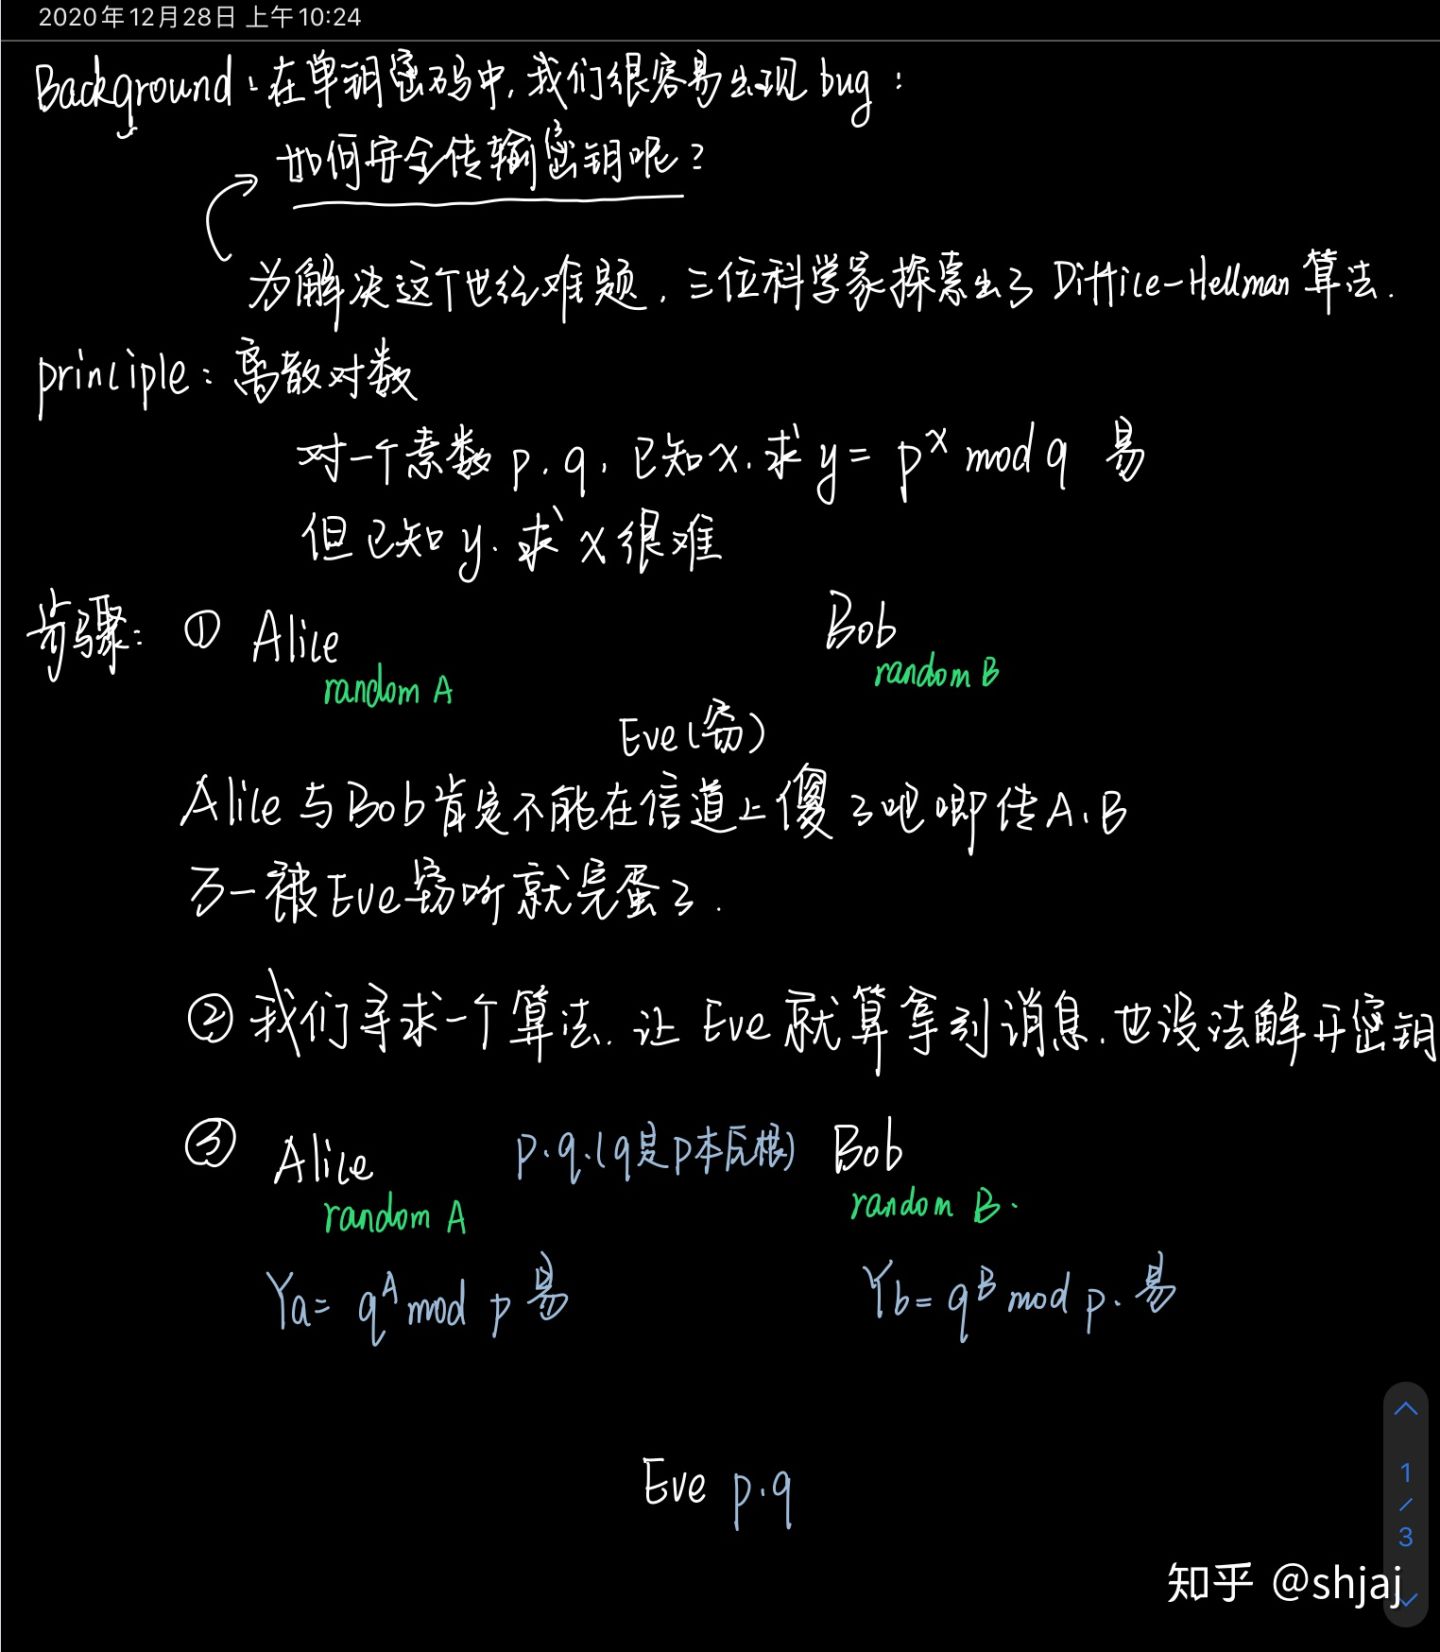 2020年12月28日 上午10:24
Background：在单钥密码中，我们很容易出现 bug：
如何安全传输密钥呢？
为解决这个世纪难题，三位科学家探索出了 Diffile-Hellman 算法．
principle：离散对数
对一个素数 p.q，已知x.求 y = p^x mod q 易
但已知 y. 求 x 很难
步骤： ① Alice Bob
random A random B
Eve（窃）
Alice 与 Bob 肯定不能在信道上傻了吧唧传 A、B
万一被 Eve 窃听就完蛋了．
② 我们寻求一个算法．让 Eve 就算拿到消息．也没法解开密钥
③ Alice p.q.(q是p本原根) Bob
random A random B.
Ya = q^A mod p 易 Yb = q^B mod p. 易
Eve p.q
1
/
3
知乎 @shjaj